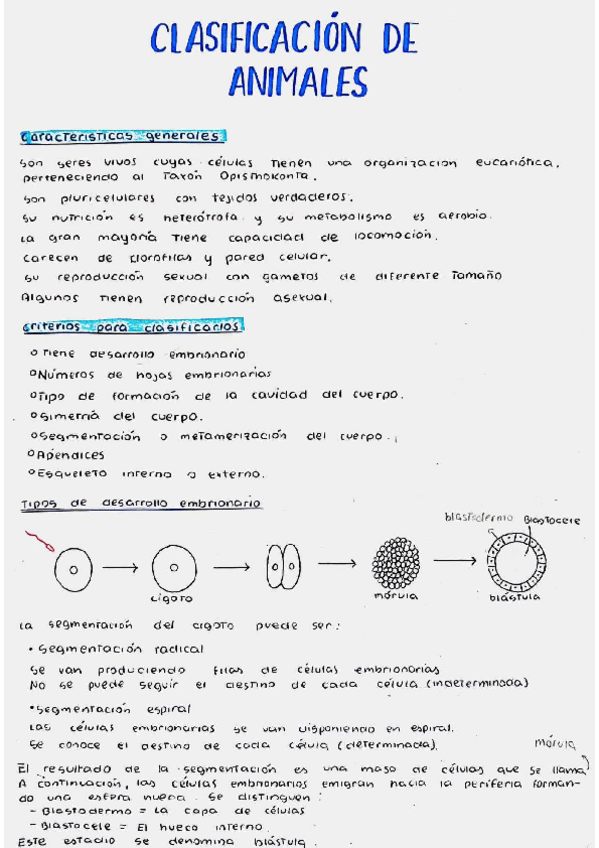 CLASIFICACIÓN DE
ANIMALES
Características generales
Son seres vivos cuyas células tienen una organización eucariótica,
perteneciendo al Taxón Opismokonta.
Son pluricelulares con tejidos verdaderos.
Su nutrición es heterótrofa y su metabolismo es aerobio.
La gran mayoría tiene capacidad de locomoción.
Carecen de clorofilas y pared celular.
Su reproducción sexual con gametos de diferente tamaño
Algunos tienen reproducción asexual.
Criterios para clasificarlos
o Tiene desarrollo embrionario
o Números de hojas embrionarias
o Tipo de formación de la cavidad del cuerpo.
o Simetría del cuerpo.
o Segmentación o metamerización del cuerpo.
o Apéndices
o Esqueleto interno o externo.
Tipos de desarrollo embrionario
blastodermo Blastocele
cigoto
mórula
blástula
La segmentación del cigoto puede ser:
• Segmentación radical
Se van produciendo filas de células embrionarias
No se puede seguir el destino de cada célula (indeterminada)
• Segmentación espiral
Las células embrionarias se van disponiendo en espiral.
Se conoce el destino de cada célula (determinada).
mórula
El resultado de la segmentación es una masa de células que se llama
A continuación, las células embrionarios emigran hacia la periferia forman-
do una esfera hueca. Se distinguen:
- Blastodermo = La capa de células
- Blastocele = El hueco interno.
Este estadio se denomina blástula.